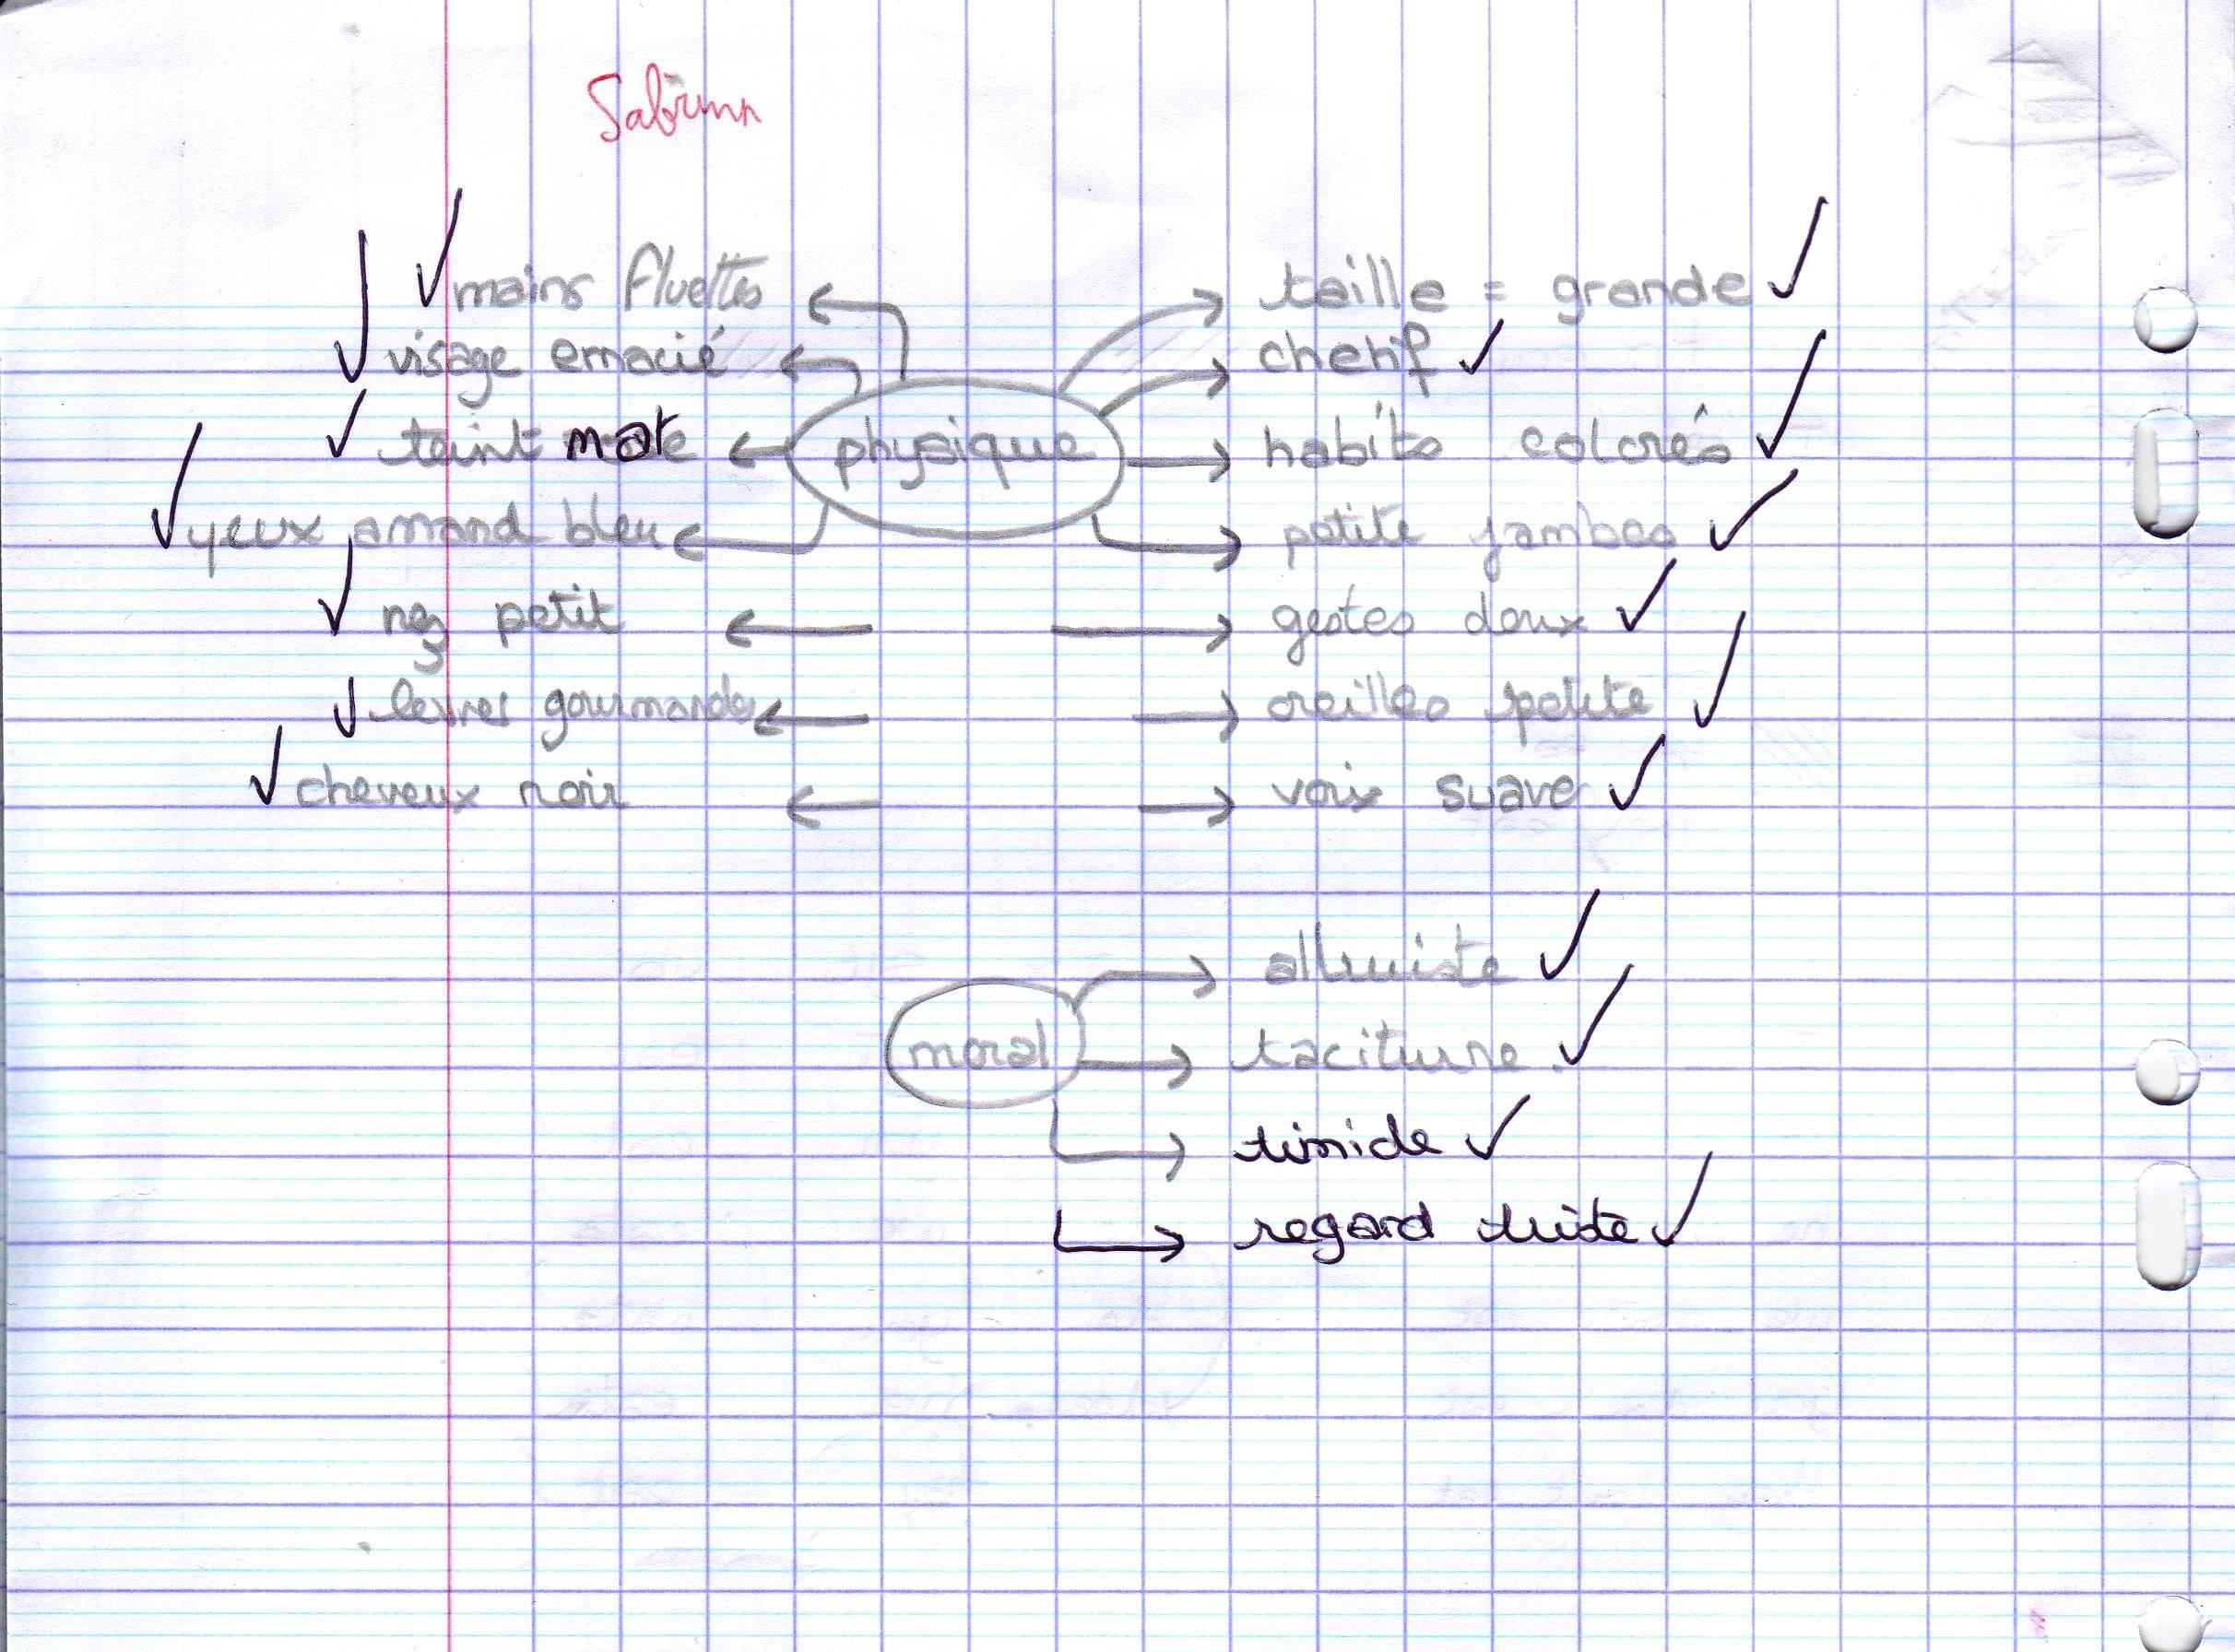 Sabrina
mains fluettes
taille = grande
visage emacié
chetif
teint mat
physique
habits colorés
yeux amand bleu
petite jambes
nez petit
gestes doux
levres gourmandes
oreilles petite
cheveux noir
voix suave
altruiste
moral
taciturne.
timide
regard triste